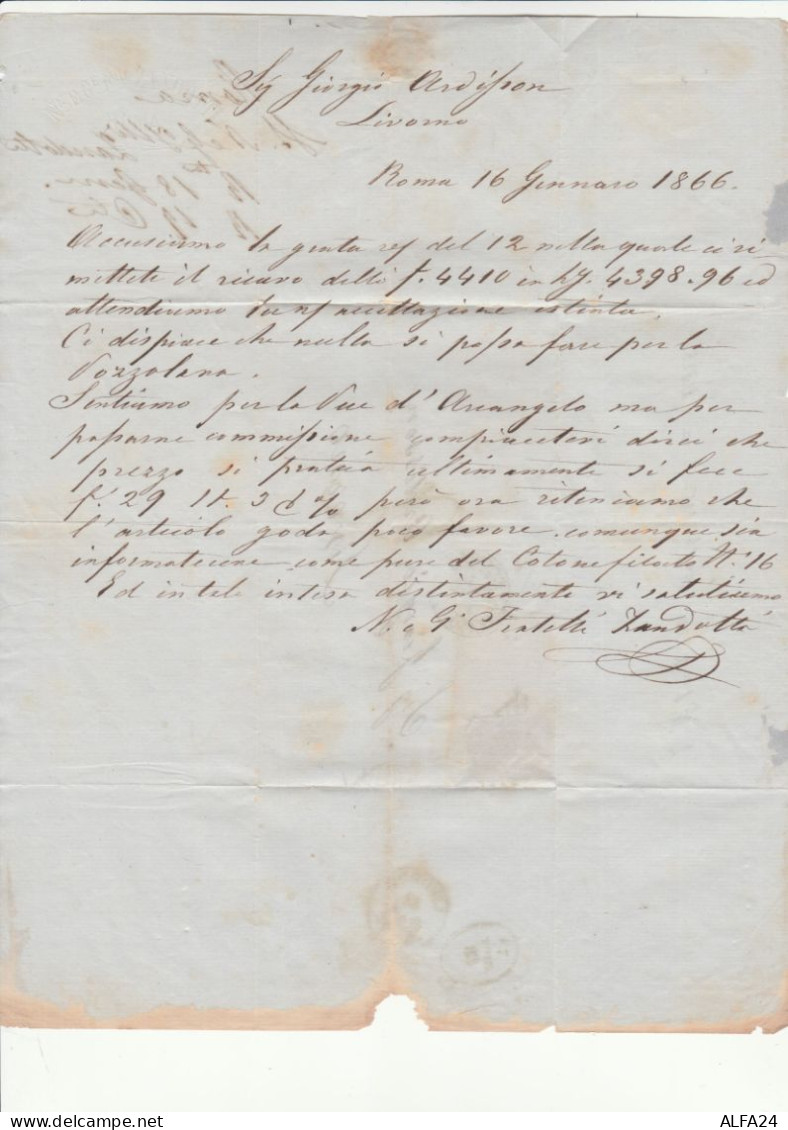 Sig Giorgio Ardisson
Livorno
Roma 16 Gennaro 1866.
Accusiamo la grata del 12 nella quale ci ri
mettete il ricavo delli f. 4410 in 4398.96 ed
attendiamo accettazione estinta.
Ci dispiace che nulla si possa fare per la
Pozzolana.
Sentiamo per la d'Arcangelo ma per
passarne commissione compiacetevi dirci che
prezzo si pratica ultimamente si fece
f. 29 però ora riteniamo che
l'articolo goda poco favore. comunque sia
informatecene come pure del Cotone filato N.° 16
Ed in tale intesa distintamente vi salutiamo
N. e G. Fratelli Zandotti
ALFA24